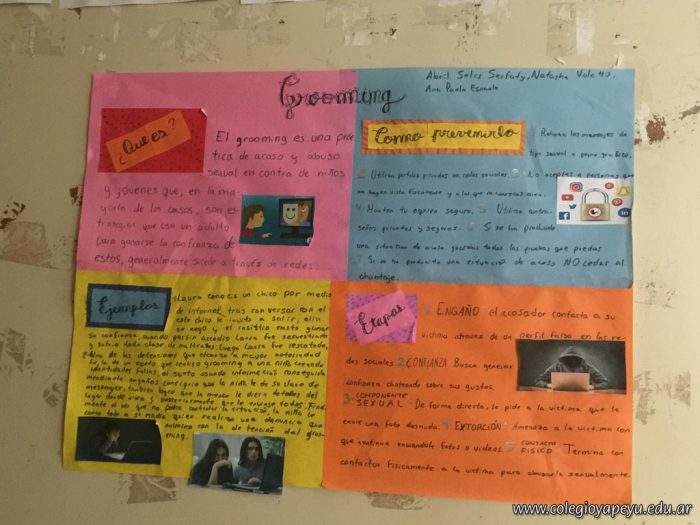 Grooming
Abril Solis Serfaty, Natasha
Ana Paula
¿Que es?
El grooming es una prác
tica de acoso y abuso
sexual en contra de niños
y jóvenes que, en la ma-
yoría de los casos, son es-
trategias que usa un adulto
para ganarse la confianza de
estos, generalmente sucede a través de redes
Como prevenirlo
1. Rechaza los mensajes de
tipo sexual o pornográfico.
2. Utiliza perfiles privados en redes sociales. 3. No aceptes a personas que
no hayas visto físicamente y a las que no conozcas bien.
4. Manten tu equipo seguro. 5 Utiliza contra-
señas privadas y seguras. 6 Si se han producido
una situación de acoso guardas todas las pruebas que puedas
7 Si se ha producido una situación de acoso NO cedas al
chantaje.
Ejemplos
Laura conocio un chico por medio
de internet tras conversar con el
este chico le invito a salir, ella
se negó y el insistio hasta ganar
su confianza, cuando por fin accedio Laura fue secuestrada
y sufrio toda clase de maltratos. Luego Laura fue rescatada
una de las detenciones que alcanzo la mayor notoriedad
fue la de un sujeto que realizo grooming a una niña creando
identidades falsas, el sujeto usando información conseguida
mediante engaños consiguio que la niña le de su clave de
messenger, tambien logro que la menor le diera detalles del
lugar donde vivia y posteriormente que le enviase fotos. Final
mente al ver que no podia controlar la situación, la niña le
conto todo a su madre quien realizo una denuncia que
culmino con la detención del groo-
ming.
Etapas
1. ENGAÑO el acosador contacta a su
victima atraves de un perfil falso en las re-
des sociales 2. CONFIANZA Busca generar
confianza chateando sobre sus gustos.
3. COMPONENTE
SEXUAL: De forma directa, le pide a la victima que le
envie una foto desnuda. 4 EXTORCIÓN: Amenaza a la victima con
que continue enviandole fotos o videos. 5 CONTACTO
FISICO Termina con
contactar fisicamente a la victima para abusarla sexualmente.
www.colegioyapeyu.edu.ar